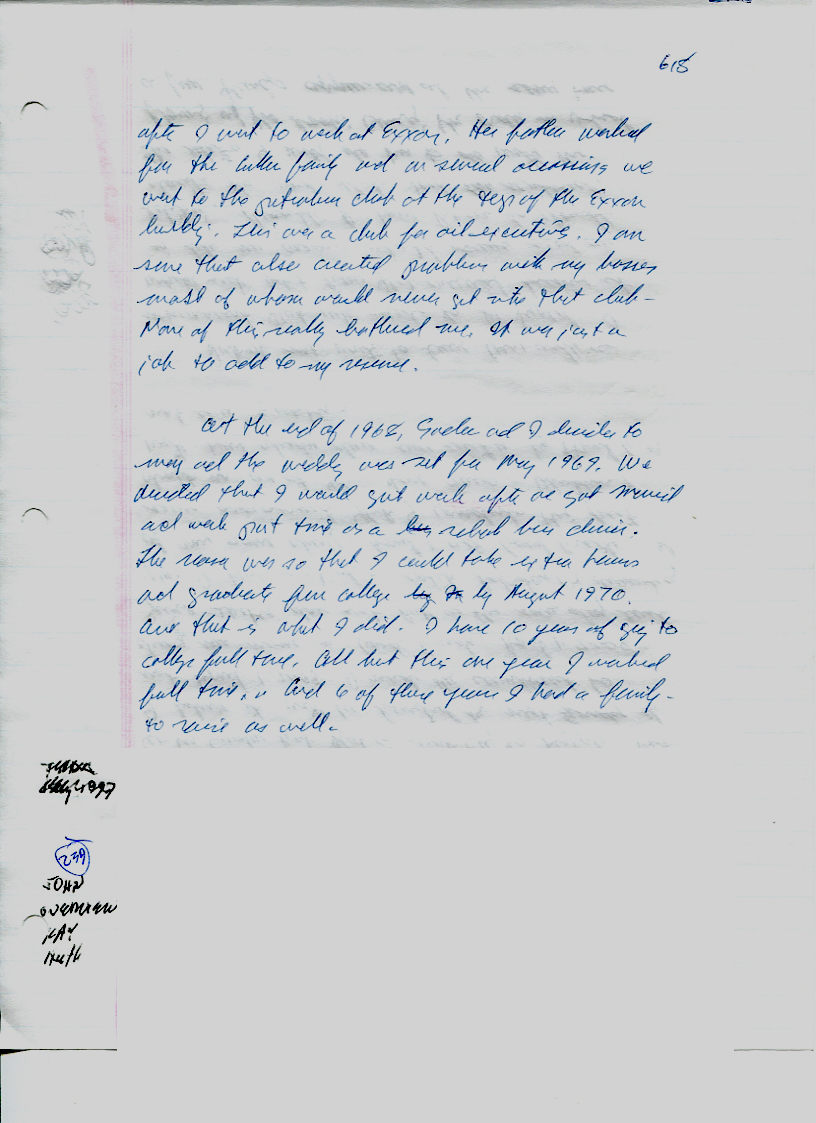 618
after I went to work at Exxon. Her father worked
for the Cullen family and on several occassions we
went to the petroleum club at the top of the Exxon
building. This was a club for oil executives. I am
sure that also created problems with my bosses
most of whom would never get into that club-
None of this really bothered me. It was just a
job to add to my resume.
At the end of 1968, and I decided to
marry and the wedding was set for May 1969. We
decided that I would quit work after we got married
and work part time as a school bus driver.
The reason was so that I could take extra hours
and graduate from college by August 1970.
And that is what I did. I have 10 years of going to
college full time. All but this one year I worked
full time. And 6 of those years I had a family-
to raise as well-
1997
239
JOHN
OVERMEN
KAY